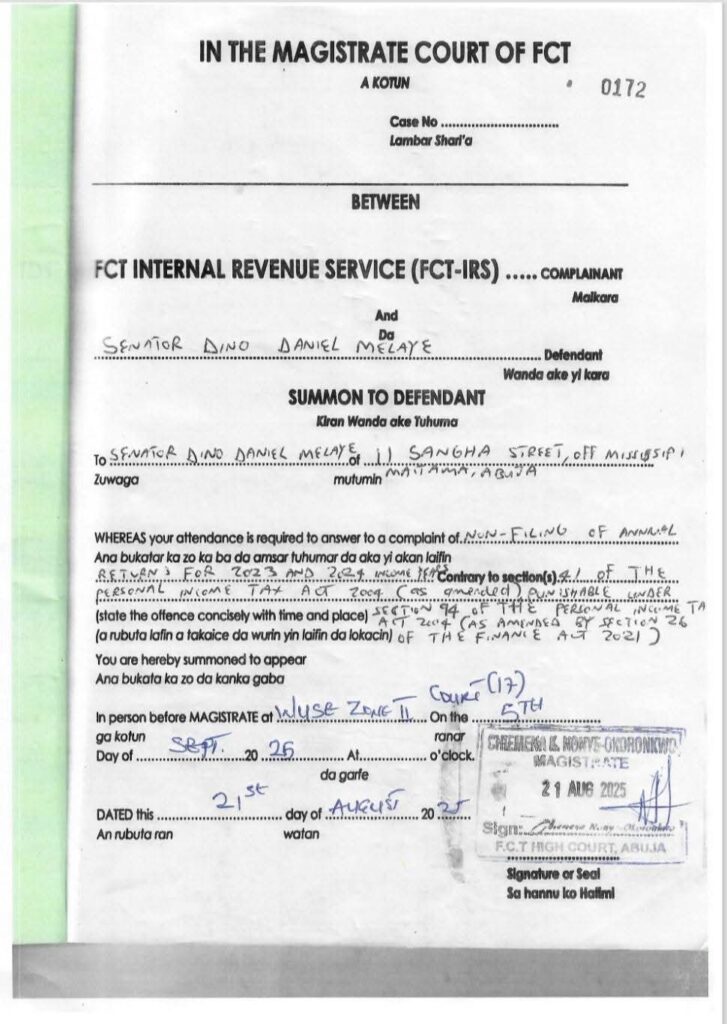 IN THE MAGISTRATE COURT OF FCT
A KOTUN
0172
Case No ..............................
Lambar Shari'a
BETWEEN
FCT INTERNAL REVENUE SERVICE (FCT-IRS) ..... COMPLAINANT
Maikara
And
Da
SENATOR DINO DANIEL MELAYE Defendant
Wanda ake yi kara
SUMMON TO DEFENDANT
Kiran Wanda ake Tuhuma
To SENATOR DINO DANIEL MELAYE of 11 SANGHA STREET, OFF MISSISIPI
Zuwaga mutumin MAITAMA, ABUJA
WHEREAS your attendance is required to answer to a complaint of NON-FILING OF ANNUAL
Ana bukatar ka zo ka ba da amsar tuhumar da aka yi akan laifin
RETURNS FOR 2023 AND 2024 INCOME YEARS Contrary to section(s) 41 OF THE
PERSONAL INCOME TAX ACT 2004 (as amended) PUNISHABLE UNDER
(state the offence concisely with time and place) SECTION 94 OF THE PERSONAL INCOME TA
ACT 2004 (AS AMENDED BY SECTION 26
(a rubuta lafin a takaice da wurin yin laifin da lokacin) OF THE FINANCE ACT 2021)
You are hereby summoned to appear
Ana bukata ka zo da kanka gaba
COURT (17)
In person before MAGISTRATE at WUSE ZONE II On the 5TH
ga kotun ranar
Day of SEPT. 20 25 At o'clock.
da garfe
DATED this 21st day of AUGUST 20 25
An rubuta ran watan
CHIEMENA K. NONYE-OKORONKWO
MAGISTRATE
21 AUG 2025
Sign:
F.C.T HIGH COURT, ABUJA
Signature or Seal
Sa hannu ko Hatimi